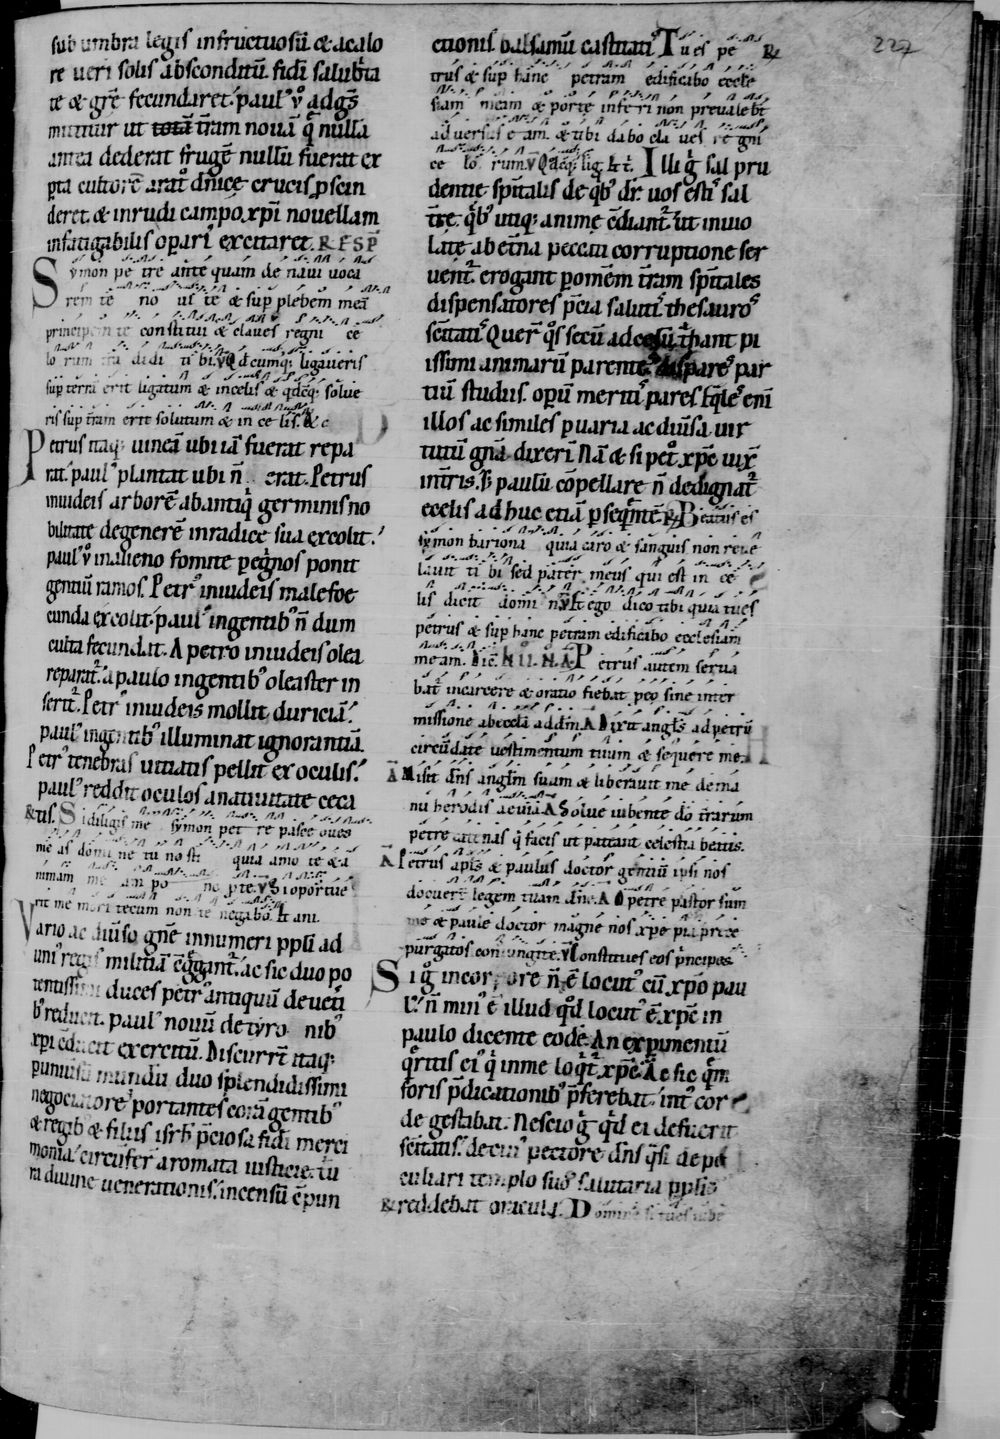 227
sub umbra legis infructuosū & acalo
re ueri solis absconditū. fidi salubͥta
te & grē fecundaret.' paulꝰ v̊ adgꝰ
mittitur ut totā t̄ram nouā q̄ nullā
antea dederat frugē nullū fuerat ex
pta cultorē arat̊ dn̄ice crucis pscin
deret. & inrudi campo. xp̄i nouellam
infatigabilis opari excitaret. RESP̄
Symon pe tre ante quam de naui uoca
rem te no ui te & sup plebem meā
principem te constitui & claues regni ce
lo rum tra didi ti bi. V̄ Qdcumq; ligaueris
sup terrā erit ligatum & incelis & qdcq; solue
ris sup t̄ram erit solutum & in ce lis. & c
Petrus itaq; uineā ubi iā fuerat repa
rat.' paulꝰ plantat ubi n̄ erat. Petrus
iniudeis arborē abantiqͥ germinis no
bilitate degenerē inradice sua excolit.'
paulꝰ v̊ inalieno fomite pegͥnos ponit
gentiū ramos. Petrꝰ iniudeis male foe
cunda excolit.' paulꝰ ingentibꝰ n̄ dum
culta fecundat. A petro iniudeis olea
reparatᷣ. a paulo ingentibꝰ oleaster in
seritᷣ. Petrꝰ iniudeis mollit duriciā.'
paulꝰ ingentibꝰ illuminat ignorantiā.
Petrꝰ tenebras uitiatis pellit ex oculis.'
paulꝰ reddit oculos anatiuitate ceca
tis. Si diligis me symon pet re pasce oues
me as domi ne tu nosti quia amo te & a
nimam me am po no p te. V̄ Si oportue
rit me mori tecum non te negabo. & ani.
Vario ac diūso gn̄e innumeri ppli ad
uni regis militiā c̄ggantᷣ. ac sic duo po
tentissimi duces petrꝰ antiquū deueti
bꝰ reducit. paulꝰ nouū de tyro nibꝰ
xp̄i c̄ducit exercitū. Discurrt̄ itaq;
puniūsū mundū duo splendidissimi
negociatore portantes corā gentibꝰ
& regibꝰ & filiis isrl̄ p̄ciosa fidi merci
monia.' circūferᷣ aromata iusticie. t̄u
ra diuine uenerationis.' incensū c̄pun
ctionis. balsamū castitatiꝰ Tu es pe
trus & sup hanc petram edificabo eccle
siam meam & porte inferi non preualebt̄
aduersus e am. & tibi dabo cla ues re gni
ce lo rum. V̄ Qdcq; lig. & t̄. Illi g̊ sal pru
dentie spn̄talis de qͥbꝰ dr̄. uos estis sal
tr̄e. qͥbꝰ utiq; anime c̄diantᷣ ut inuio
late ab et̄na peccati corruptione ser
uentᷣ. erogant p omēm t̄ram spn̄tales
dispensatores p̄cia salutiꝰ. thesauroꝰ
scītatiꝰ. Querᷣ qͦs secū ad celū thant pi
issimi animarū parente dispare par
tiū studiis. opū meritū pares. Eqͣleꝰ enī
illos ac similes p uaria ac diūsa uir
tutū gnā dixeri. Nā & si pet̊ xp̄c uix̄
int̄ris.' s; paulū cōpellare n̄ dedignatᷣ
ecelis adhuc etiā pseqͣmtē. R̄ Beatus es
symon bariona quia caro & sanguis non reue
lauit ti bi sed pater meus qui est in ce
lis dicit domi nꝰ. V̄ Et ego dico tibi quia tu es
petrus & sup hanc petram edificabo ecclesiam
meam. Petrus autem serua
batᷣ incarcere & oratio fiebat p eo sine inter
missione abecclā addm̄. A Dixit angl̄s ad petrū
circūdate uestimentum tuum & sequere me.
A Misit dn̄s anglm̄ suum & liberauit me de ma
nu herodis aeuia. A Solue iubente do trarum
petre catenas q̄ facis ut pateant celestia beatis.
A Petrus aplꝰ & paulus doctor gentiū ipsi nos
docuerᷣ legem tuam dn̄e. A O petre pastor sum
me & paule doctor magne nos xp̄e pia prece
purgatos coniungite. V̄ Constitues eos p̄ncipes.
Si g̊ incorpore n̄ ē locutꝰ cū xp̄o pau
lꝰ.' n̄ minꝰ ē illud qd̊ locutꝰ ē xp̄c in
paulo dicente eodē. An expimentū
qͣritis eiꝰ qͥ inme loqͥtᷣ xp̄c. Ac sic qͣm
foris p̄dicationibꝰ p̄ferebat. int̄ cor
de gestabat. Nescio g̊ qd̄ ei defuerit
scītatis.' de cuiꝰ pectore dn̄s qͣsi de pe
culiari templo suoꝰ salutaria ppl̄is
reddebat oracula. Domine si tu es iube